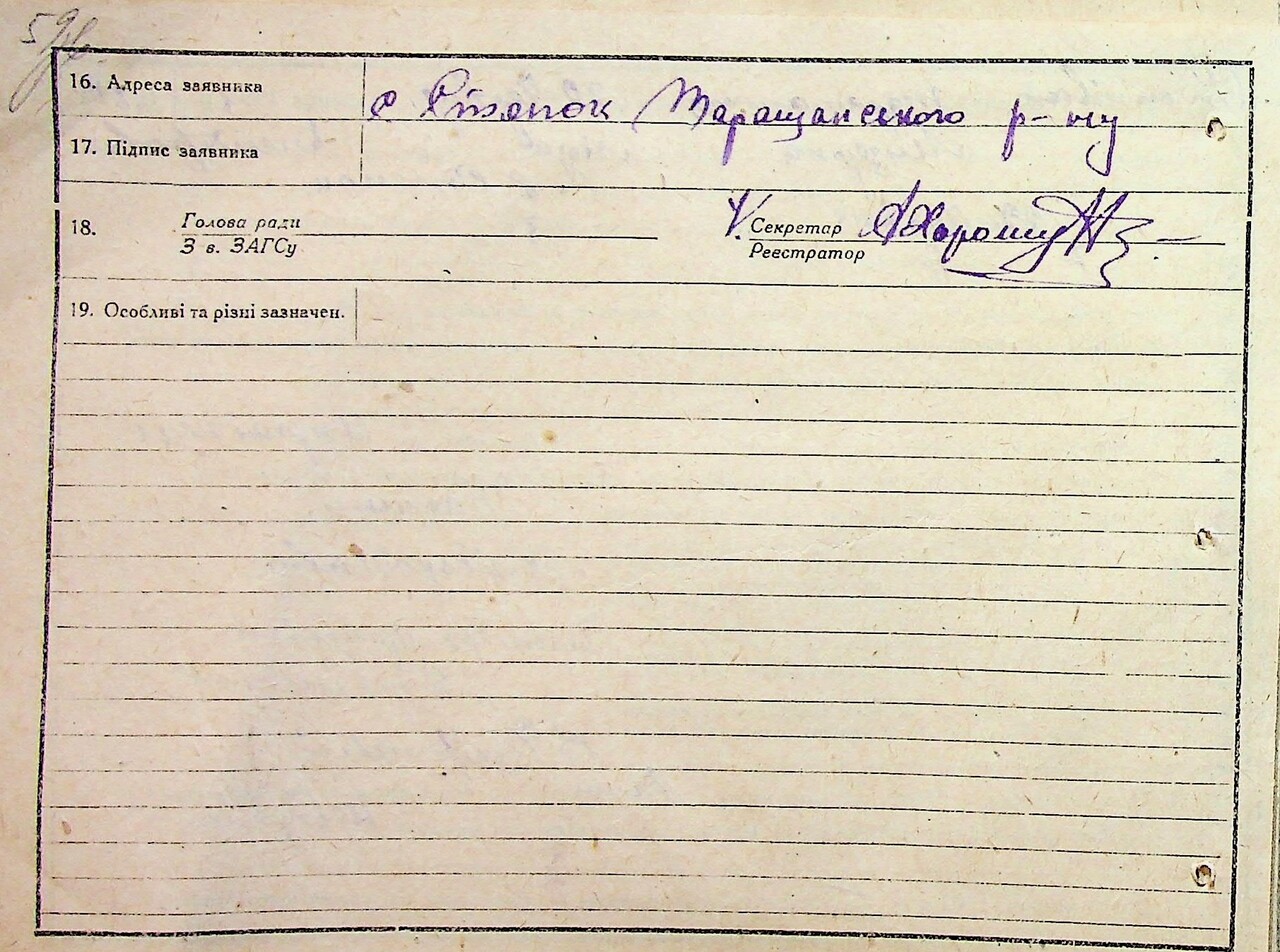 59
16. Адреса заявника с Ріжок Таращанського р-ну
17. Підпис заявника
18. Голова ради Секретар
З в. ЗАГСу Реєстратор
19. Особливі та різні зазначен.